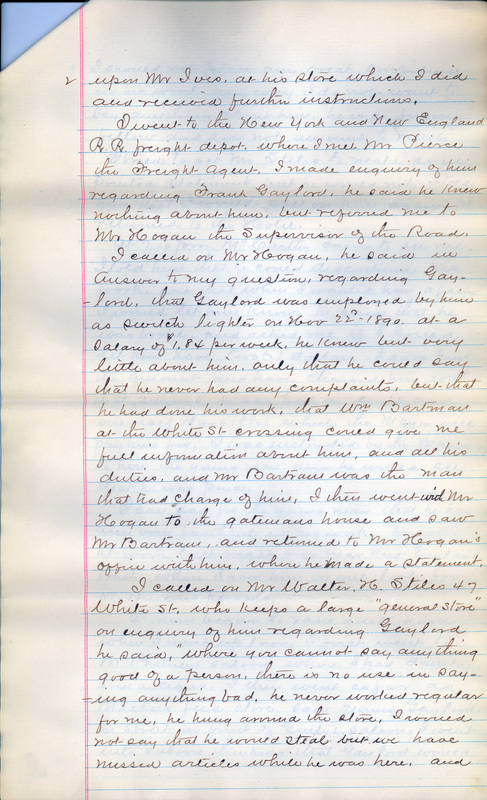 2 upon Mr Ives, at his store which I did
and received further instructions.
I went to the New York and New England
R.R. freight depot, where I met Mr Pierce
the Freight Agent. I made enquiry of him
regarding Frank Gaylord, he said he knew
nothing about him, but refered me to
Mr Hogan the Supervisor of the Road.
I called on Mr Hogan, he said in
answer to my question, regarding Gay-
-lord, that Gaylord was employed by him
as switch lighter on Nov 22d-1890. at a
salary of $1.84 per week, he knew but very
little about him, only that he could say
that he never had any complaints, but that
he had done his work, that Wm Bartram
at the White St crossing could give me
full information about him, and all his
duties, and Mr Bartram was the man
that had charge of him, I then went with Mr
Hogan to the gatemans house and saw
Mr Bartram, and returned to Mr Hogan's
office with him, where he made a statement.
I called on Mr Walter. H. Stiles 47
White St. who keeps a large "general store"
on enquiry of him regarding Gaylord
he said, "where you cannot say anything
good of a person, there is no use in say-
-ing anything bad, he never worked regular
for me, he hung around the store, I would
not say that he would steal but we have
missed articles while he was here, and